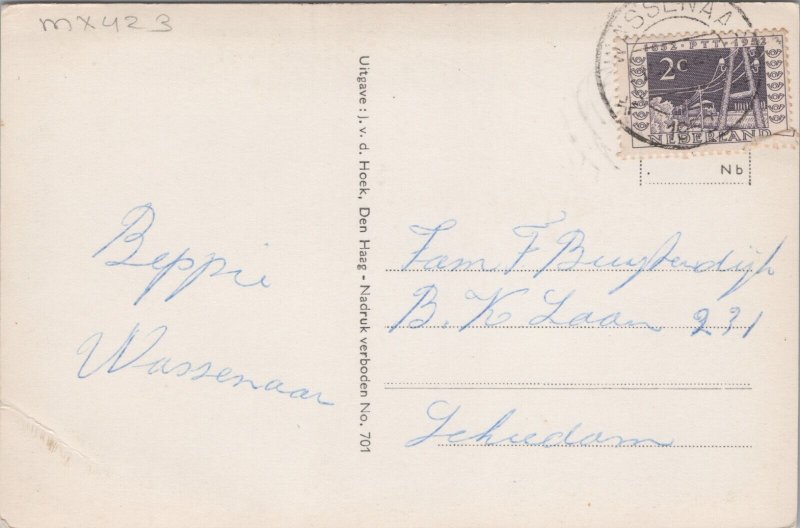 mx423
WASSENAAR
1852·PTT·1952
2c
NEDERLAND
Nb
Uitgave: J. v. d. Hoek, Den Haag - Nadruk verboden No. 701
Beppie
Wassenaar
Fam F Buytendijk
B. K Laan 231
Schiedam